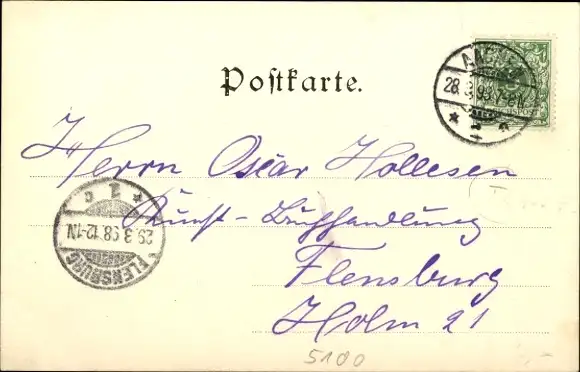 Postkarte.
28.3.98.7-8N.
Herrn Oscar Hollesen
Kunst-Buchhandlung
Flensburg
Holm 21
FLENSBURG
29.3.98.12-1N
1 c
5100